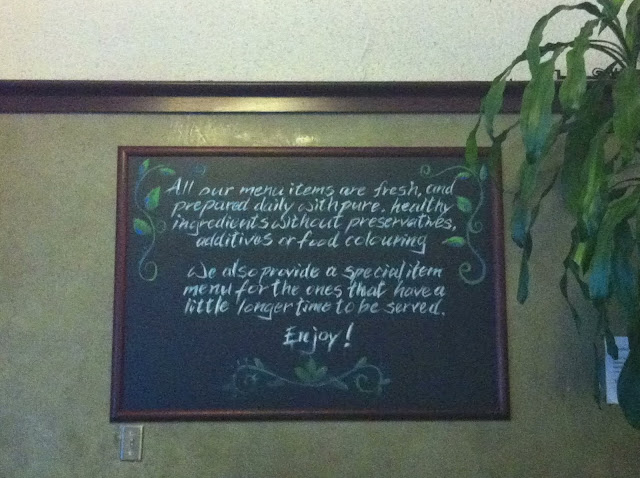 All our menu items are fresh, and
prepared daily with pure, healthy
ingredients without preservatives,
additives or food colouring
We also provide a special item
menu for the ones that have a
little longer time to be served.
Enjoy!